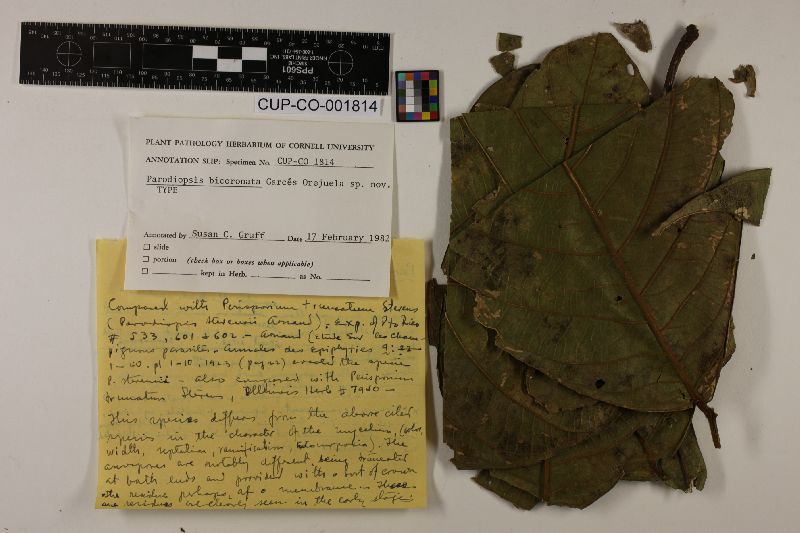 PPS601
CUP-CO-001814
PLANT PATHOLOGY HERBARIUM OF CORNELL UNIVERSITY
ANNOTATION SLIP: Specimen No. CUP-CO 1814
Parodiopsis bicoronata Garcés Orejuela sp. nov.
TYPE
Annotated by Susan C. Gruff Date 17 February 1982
☐ slide
☐ portion (check box or boxes when applicable)
☐ kept in Herb. as No.
Compared with Perisporium truncatum Stevens
(Parodiopsis stevensii Arnaud), exp. of Pto Rico
# 533, 601 & 602 - Arnaud (étude sur les cham-
pignons parasites. Annales des Epiphyties
1-10, 1923 (page 2) erected the species
P. stevensii - also compared with Perisporium
truncatum Stevens, Illinois Herb # 7980 -
This species differs from the above cited
species in the character of the mycelium, (color,
width, septation, ramification, The
are notably different being truncated
at both ends and provided with a sort of crown
the residue perhaps, of a membrane. These
are residues are clearly seen in the early stages